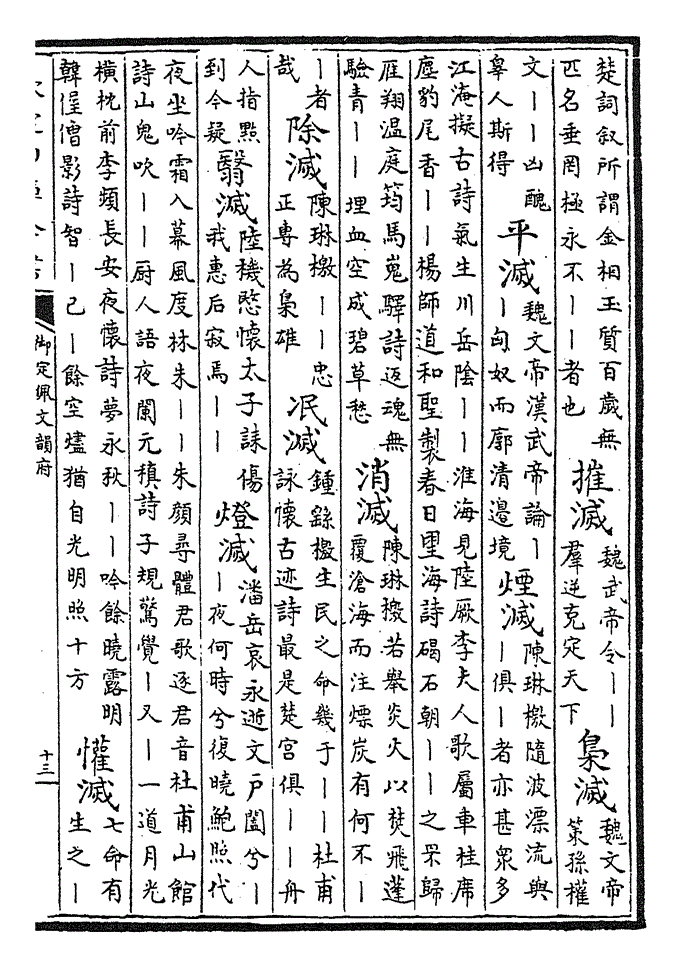 楚詞叙所謂金相玉質百歲無
匹名垂罔極永不丨丨者也
摧滅
魏武帝令丨丨
羣逆克定天下
梟滅
魏文帝
策孫權
文丨丨凶醜
辠人斯得
平滅
魏文帝漢武帝論丨
丨匈奴而廓清邊境
煙滅
陳琳檄隨波漂流與
丨俱丨者亦甚衆多
江淹擬古詩氣生川岳陰丨丨淮海見陸厥李夫人歌屬車桂席
塵豹尾香丨丨楊師道和聖製春日望海詩碣石朝丨丨之罘歸
雁翔温庭筠馬嵬驛詩返魂無
驗青丨丨埋血空成碧草愁
消滅
陳琳檄若舉炎火以焚飛蓬
覆滄海而注熛炭有何不丨
丨者
哉
除滅
陳琳檄丨丨忠
正專為梟雄
泯滅
鍾檄生民之命幾于丨丨杜甫
詠懷古迹詩最是楚宫俱丨丨舟
人指點
到今疑
翳滅
陸機愍懷太子誄傷
我惠后寂焉丨丨
燈滅
潘岳哀永逝文户闔兮丨
丨夜何時兮復曉鮑照代
夜坐吟霜入幕風度林朱丨丨朱顔尋體君歌逐君音杜甫山館
詩山鬼吹丨丨厨人語夜闌元稹詩子規驚覺丨又丨一道月光
橫枕前李頻長安夜懷詩夢永秋丨丨吟餘曉露明
韓偓僧影詩智丨已丨餘空燼猶自光明照十方
懽滅
七命有
生之丨
御定佩文韻府
十三